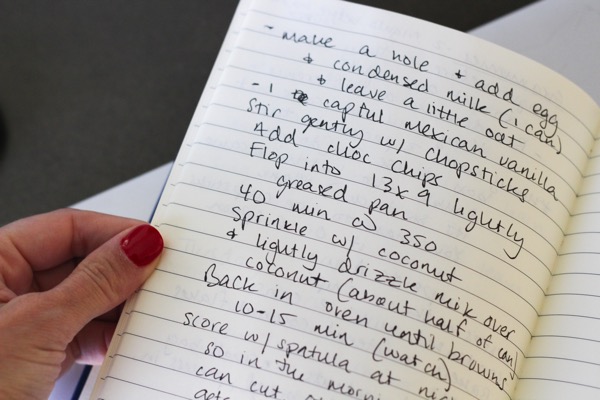 - make a hole + add egg
+ condensed milk (1 can)
+ leave a little oat
- 1 capful mexican vanilla
Stir gently w/ chopsticks
Add choc chips
Flop into 13x9 lightly
greased pan
40 min @ 350
Sprinkle w/ coconut
+ lightly drizzle milk over
coconut (about half of can)
Back in oven until browns
10-15 min (watch)
score w/ spatula at
so in the
can cut